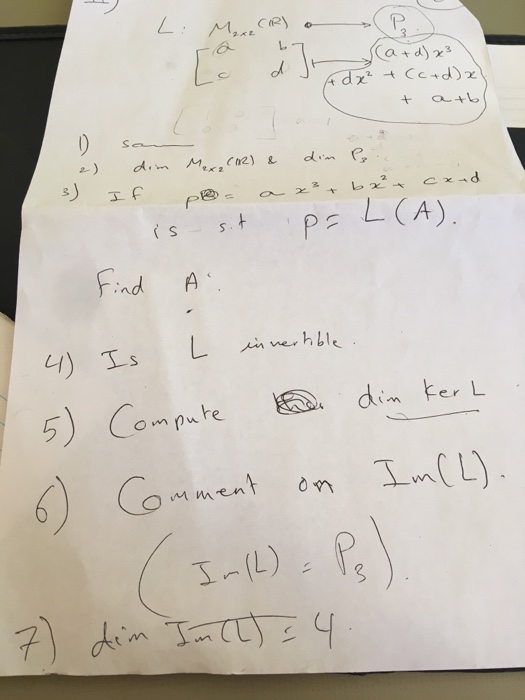 L: M2x2(R) → P3
[a b
c d] ↦ (a+d)x³
+ dx² + (c+d)x
+ a+b
1) sa
2) dim M2x2(R) & dim P3
3) If p = ax³ + bx² + cx+d
is s.t p = L(A).
Find A.
4) Is L invertible.
5) Compute dim Ker L
6) Comment on Im(L).
(Im(L) = P3).
7) dim Im(L) = 4.